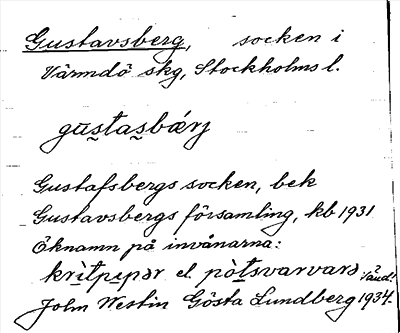 Gustavsberg, socken i
Värmdö skg, Stockholms l.
gu̲s̲ta̲s̲bǽrj
Gustafsbergs socken, bek
Gustavsbergs församling, kb 1931
Öknamn på invånarna:
krı̀tpıpər el. pòtsvarvarə Vänd!
John Westin Gösta Lundberg 1934.